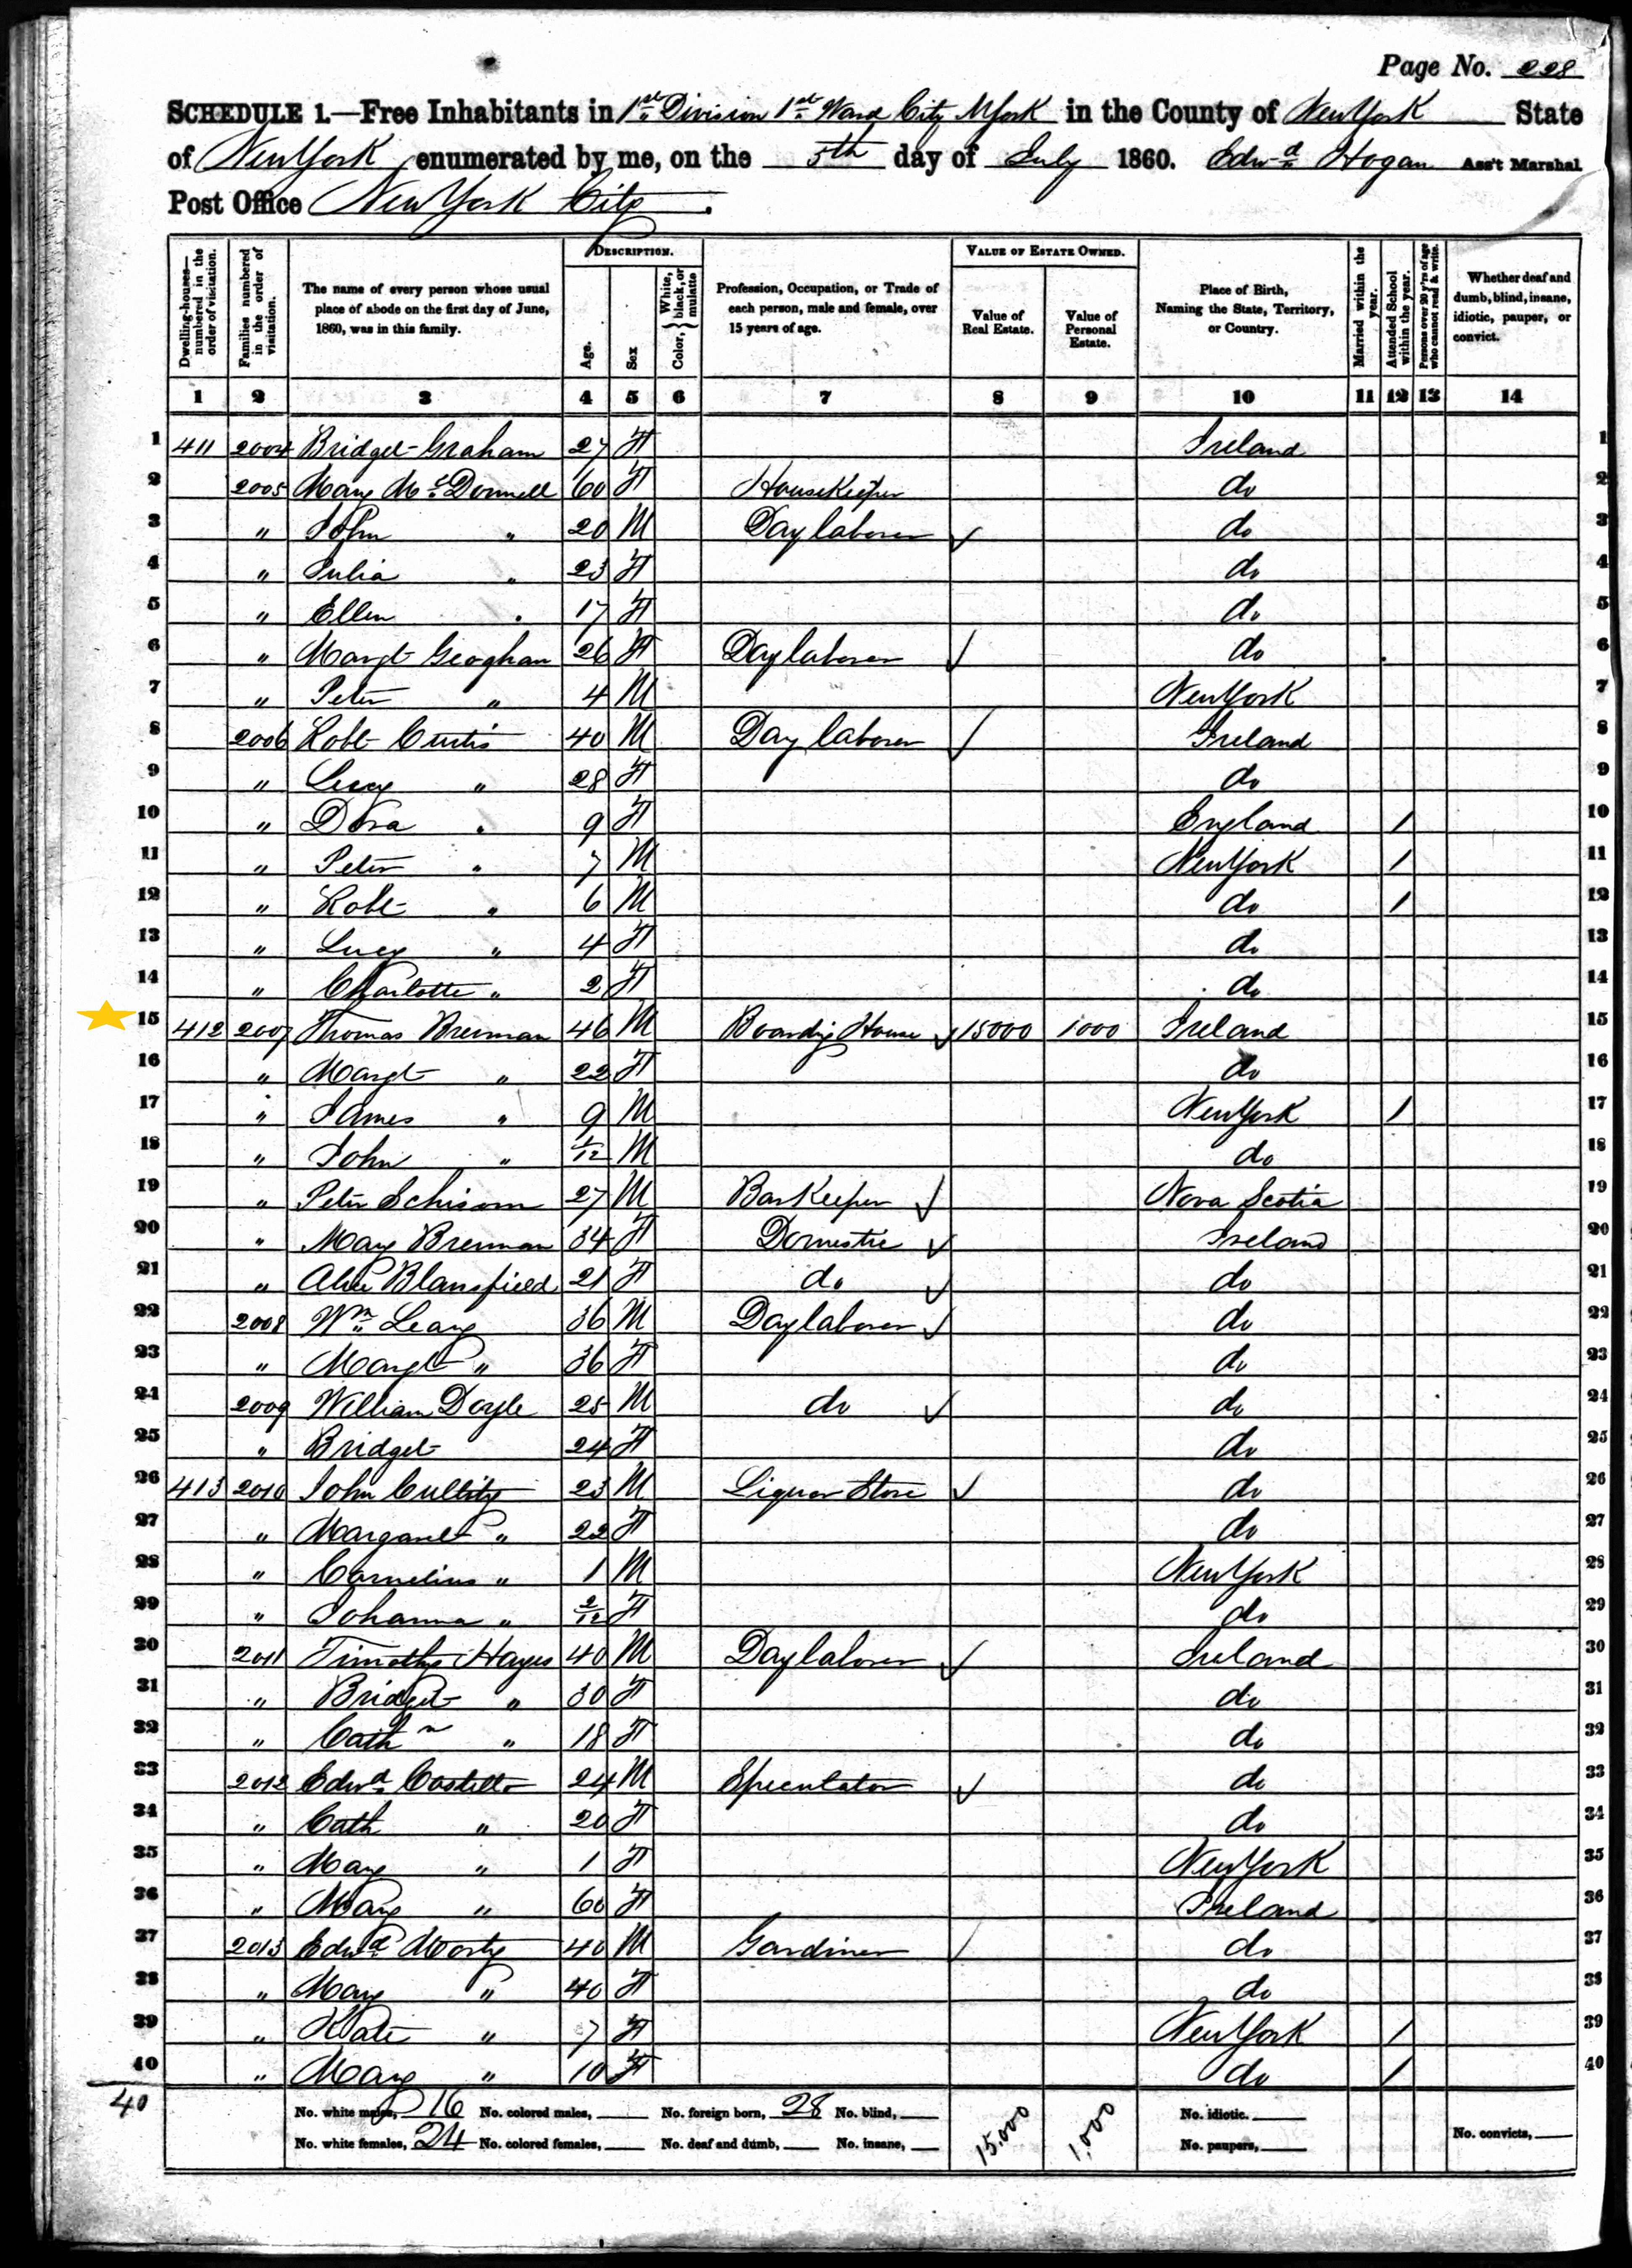 Page No. 228
SCHEDULE 1.—Free Inhabitants in 1st Division 1st Ward City N York in the County of New York State
of New York enumerated by me, on the 5th day of July 1860. Edwd Hogan Ass't Marshal
Post Office New York City.
Dwelling-houses—numbered in the order of visitation.
Families numbered in the order of visitation.
The name of every person whose usual place of abode on the first day of June, 1860, was in this family.
DESCRIPTION.
Age.
Sex
Color, } White, black, or mulatto
Profession, Occupation, or Trade of each person, male and female, over 15 years of age.
VALUE OF ESTATE OWNED.
Value of Real Estate.
Value of Personal Estate.
Place of Birth, Naming the State, Territory, or Country.
Married within the year.
Attended School within the year.
Persons over 20 y'rs of age who cannot read & write.
Whether deaf and dumb, blind, insane, idiotic, pauper, or convict.
1 2 3 4 5 6 7 8 9 10 11 12 13 14
1 411 2004 Bridget Graham 27 F Ireland 1
2 2005 Mary McDonnell 60 F Housekeeper do 2
3 " John " 20 M Day laborer ✓ do 3
4 " Julia " 23 F do 4
5 " Ellen " 17 F do 5
6 " Margt Geoghan 26 F Day laborer ✓ do 6
7 " Peter " 4 M New York 7
8 2006 Robt Curtis 40 M Day laborer ✓ Ireland 8
9 " Lucy " 28 F do 9
10 " Dora " 9 F England / 10
11 " Peter " 7 M New York / 11
12 " Robt " 6 M do / 12
13 " Lucy " 4 F do 13
14 " Charlotte " 2 F do 14
15 412 2007 Thomas Brennan 46 M Boarding House ✓ 15000 1000 Ireland 15
16 " Margt " 22 F do 16
17 " James " 9 M New York / 17
18 " John " 1/12 M do 18
19 " Peter Schisom 27 M Bar Keeper ✓ Nova Scotia 19
20 " Mary Brennan 34 F Domestic ✓ Ireland 20
21 " Alice Blansfield 21 F do ✓ do 21
22 2008 Wm Leary 36 M Day laborer ✓ do 22
23 " Margt " 36 F do 23
24 2009 William Doyle 25 M do ✓ do 24
25 " Bridget 24 F do 25
26 413 2010 John Cullity 23 M Liquor Store ✓ do 26
27 " Margaret " 22 F do 27
28 " Cornelius " 1 M New York 28
29 " Johanna " 2/12 F do 29
30 2011 Timothy Hayes 40 M Day laborer ✓ Ireland 30
31 " Bridget " 30 F do 31
32 " Cathn " 18 F do 32
33 2012 Edwd Costello 24 M Speculator ✓ do 33
34 " Cath " 20 F do 34
35 " Mary " 1 F New York 35
36 " Mary " 60 F Ireland 36
37 2013 Edwd 40 M Gardiner ✓ do 37
38 " Mary " 40 F do 38
39 " Kate " 7 F New York / 39
40 " Mary " 10 F do / 40
40 No. white males, 16 No. colored males, No. foreign born, 28 No. blind, 15,000 1,000 No. idiotic.
No. white females, 24 No. colored females, No. deaf and dumb, No. insane, No. paupers, No. convicts,